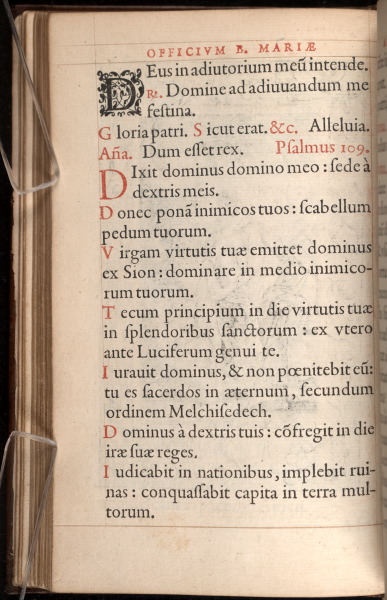 OFFICIVM B. MARIÆ
DEus in adiutorium meũ intende.
R. Domine ad adiuuandum me
festina.
Gloria patri. Sicut erat. &c. Alleluia.
Aña. Dum esset rex. Psalmus 109.
DIxit dominus domino meo : sede à
dextris meis.
Donec ponã inimicos tuos : scabellum
pedum tuorum.
Virgam virtutis tuæ emittet dominus
ex Sion : dominare in medio inimico-
rum tuorum.
Tecum principium in die virtutis tuæ
in splendoribus sanctorum : ex vtero
ante Luciferum genui te.
Iurauit dominus, & non pœnitebit eũ:
tu es sacerdos in æternum, secundum
ordinem Melchisedech.
Dominus à dextris tuis : cõfregit in die
iræ suæ reges.
Iudicabit in nationibus, implebit rui-
nas : conquassabit capita in terra mul-
torum.